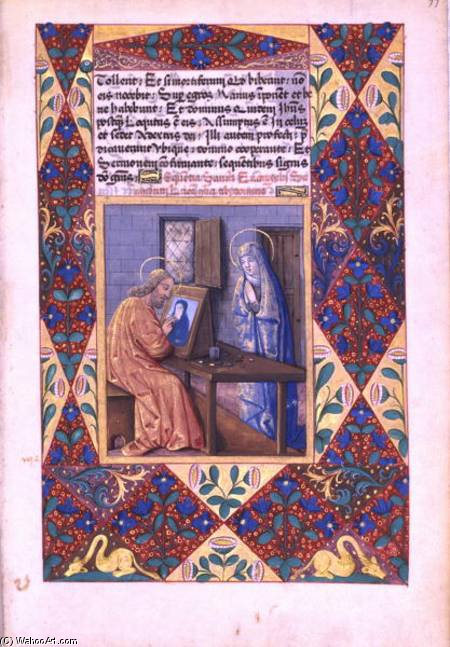 Tollent: Et si mortiferum qd biberint: nõ
eis nocebit: Sup egros Manus ĩponet et be
ne habebunt: Et dominus Quidem Ihus
postq̃ Loqutus ẽ eis: Assumptus ẽ In celũ
et sedet A dextris dei: Illi autem profecti p
dicaverunt Ubique: domino cooperante: Et
Sermonem cõfirmante: sequentibus signis
Sequentia Sancti
(C) WahooArt.com